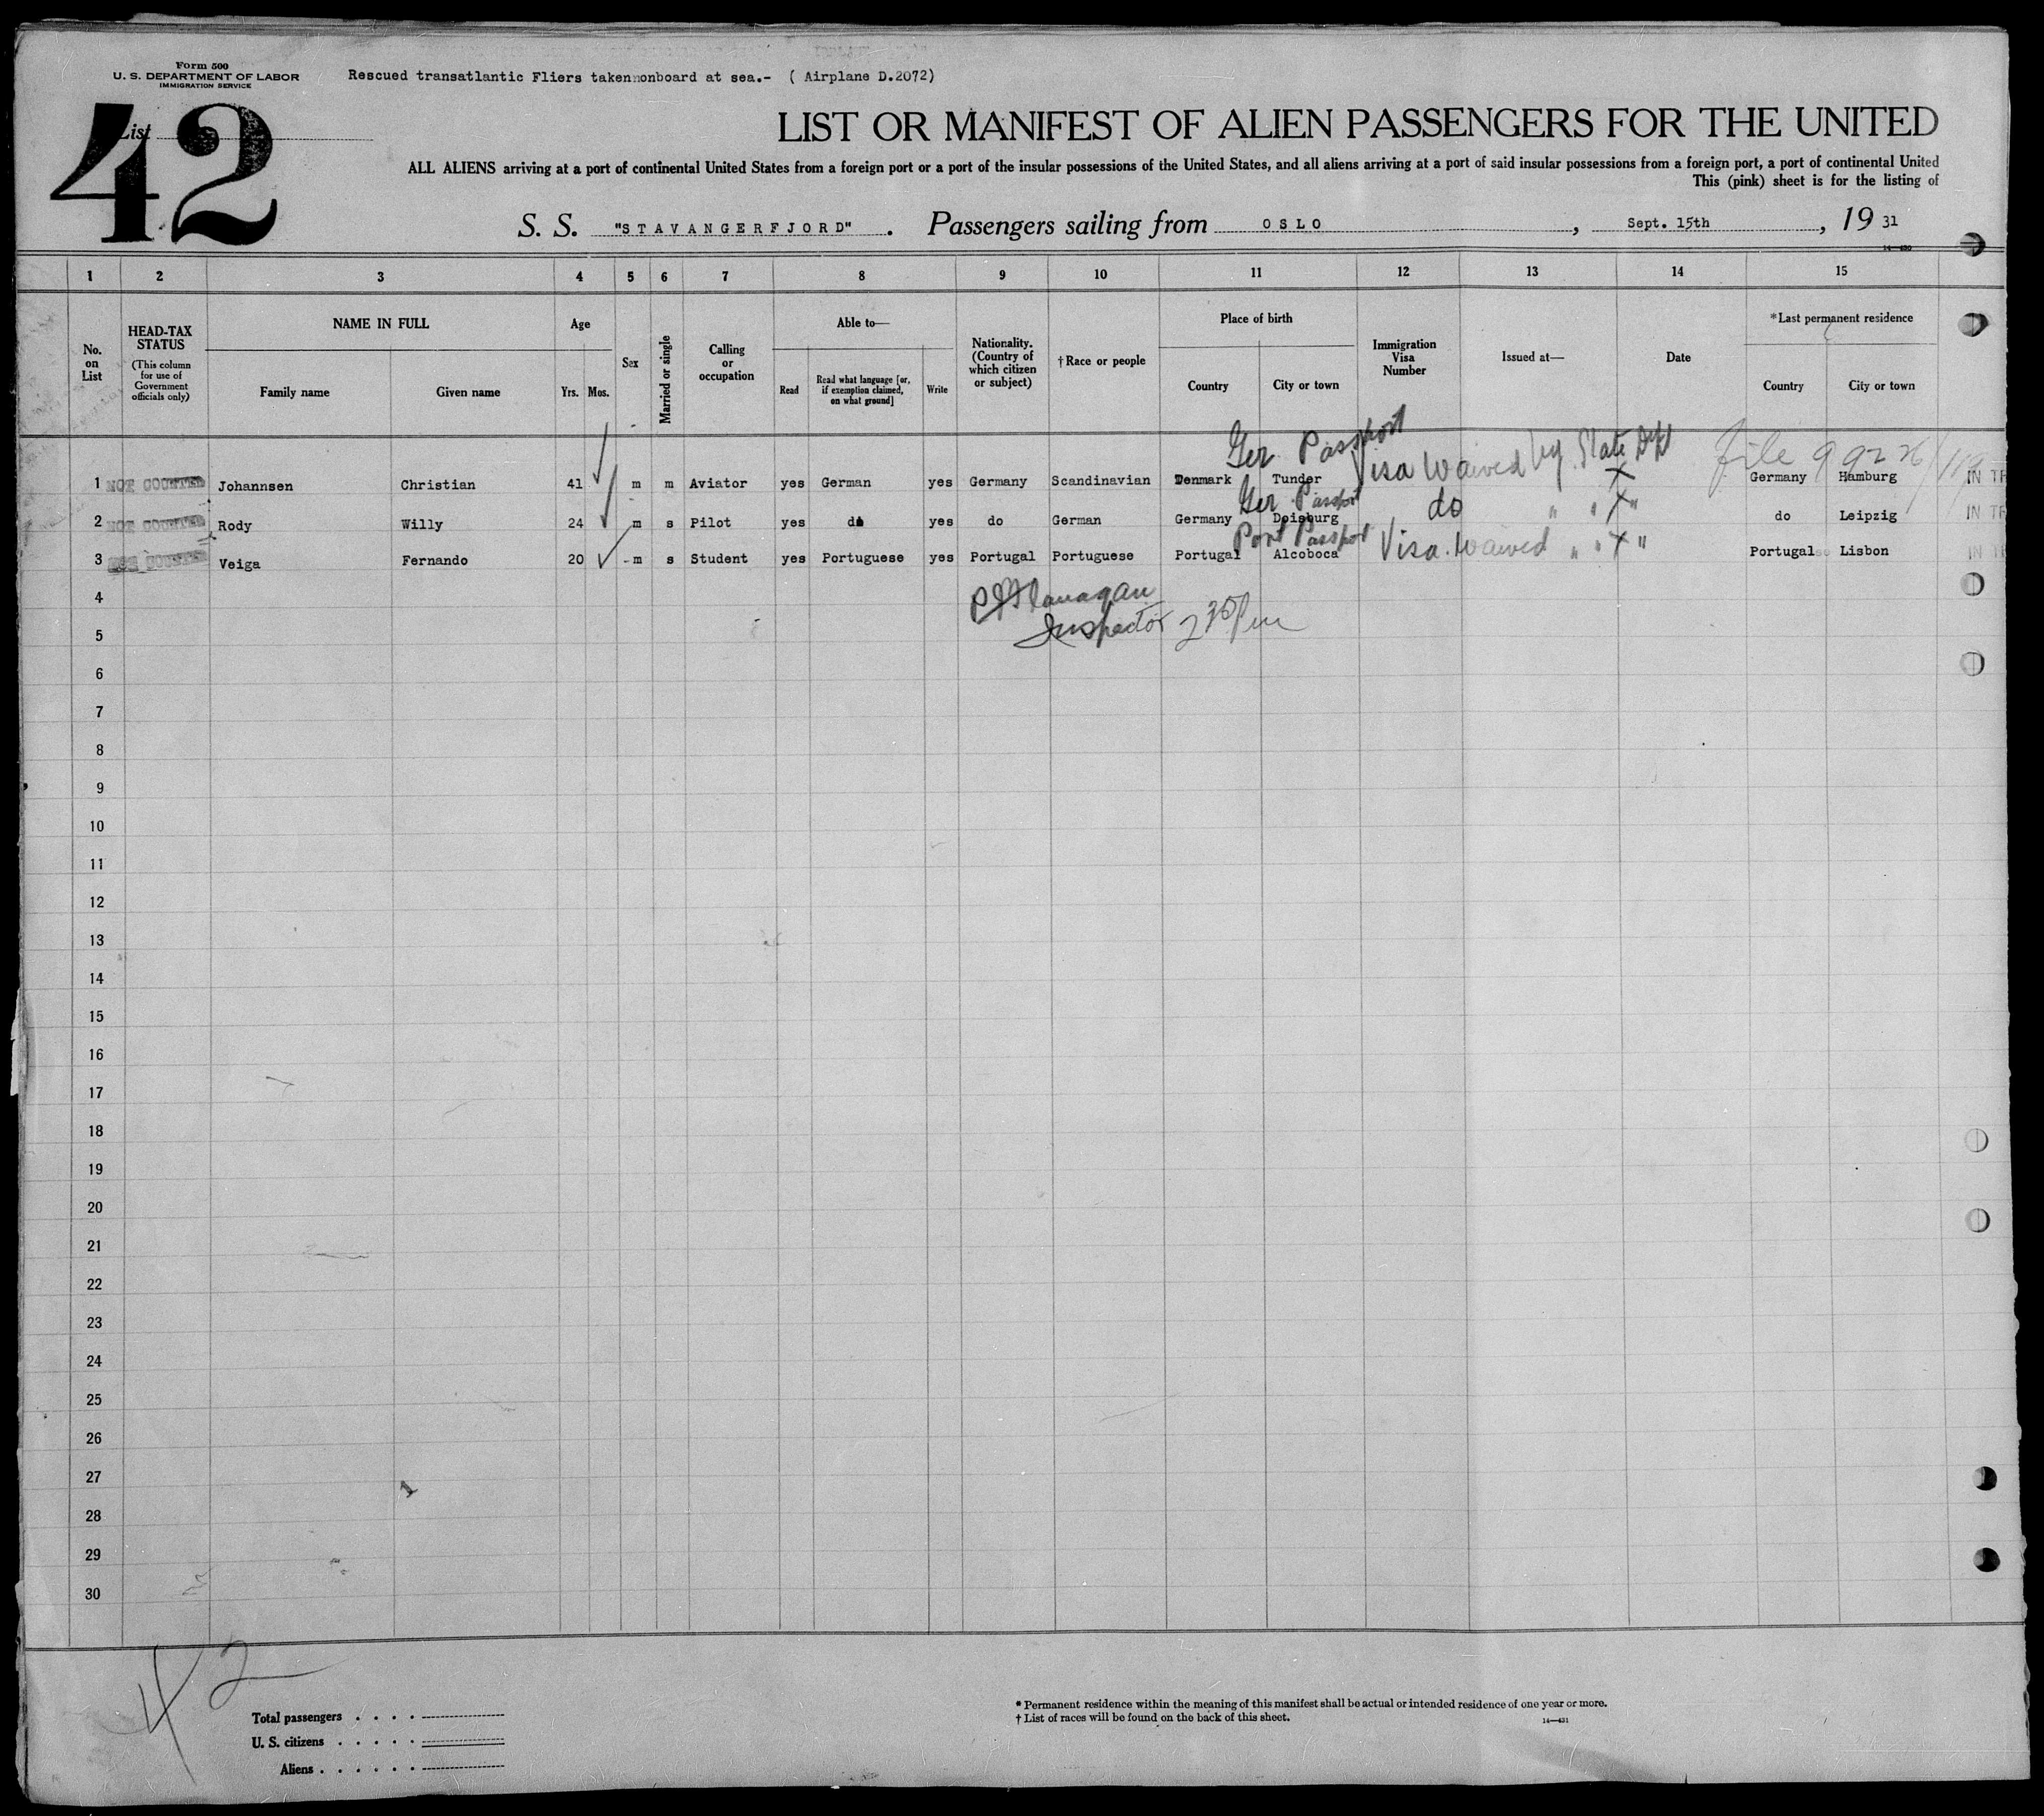 Form 500
U. S. DEPARTMENT OF LABOR
IMMIGRATION SERVICE
Rescued transatlantic Fliers takennonboard at sea.- ( Airplane D.2072)
List
42
LIST OR MANIFEST OF ALIEN PASSENGERS FOR THE UNITED
ALL ALIENS arriving at a port of continental United States from a foreign port or a port of the insular possessions of the United States, and all aliens arriving at a port of said insular possessions from a foreign port, a port of continental United
This (pink) sheet is for the listing of
S. S. "STAVANGERFJORD". Passengers sailing from OSLO, Sept. 15th, 19 31
14—430
1 2 3 4 5 6 7 8 9 10 11 12 13 14 15
No. on List
HEAD-TAX STATUS
(This column for use of Government officials only)
NAME IN FULL
Family name Given name
Age
Yrs. Mos.
Sex
Married or single
Calling or occupation
Able to—
Read Read what language [or, if exemption claimed, on what ground] Write
Nationality. (Country of which citizen or subject)
†Race or people
Place of birth
Country City or town
Immigration Visa Number
Issued at—
Date
*Last permanent residence
Country City or town
Ger Passport Visa Waived by State Dept file
1 NOT COUNTED Johannsen Christian 41 m m Aviator yes German yes Germany Scandinavian Denmark Tunder X Germany Hamburg IN TR
Ger Passport do " " X "
2 NOT COUNTED Rody Willy 24 m s Pilot yes do yes do German Germany Doisburg do Leipzig IN TR
Port Passport Visa Waived " " X "
3 NOT COUNTED Veiga Fernando 20 m s Student yes Portuguese yes Portugal Portuguese Portugal Alcoboca Portugal Lisbon IN TR
4
Flanagan
5
Inspector 2 30 pm
6
7
8
9
10
11
12
13
14
15
16
17
18
19
20
21
22
23
24
25
26
27
28
29
30
42
Total passengers . . . .
U. S. citizens . . . . .
Aliens . . . . . .
* Permanent residence within the meaning of this manifest shall be actual or intended residence of one year or more.
† List of races will be found on the back of this sheet.
14—431